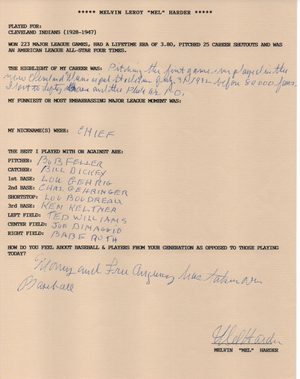 ***** MELVIN LEROY "MEL" HARDER *****
PLAYED FOR:
CLEVELAND INDIANS (1928-1947)
WON 223 MAJOR LEAGUE GAMES, HAD A LIFETIME ERA OF 3.80, PITCHED 25 CAREER SHUTOUTS AND WAS
AN AMERICAN LEAGUE ALL-STAR FOUR TIMES.
THE HIGHLIGHT OF MY CAREER WAS: Pitching the first game ever played in the
new Cleveland Municipal Stadium July 31, 1932 before 80,000 fans.
I lost to Lefty Grove and the Phila A's 1-0.
MY FUNNIEST OR MOST EMBARRASSING MAJOR LEAGUE MOMENT WAS:
MY NICKNAME(S) WERE: CHIEF
THE BEST I PLAYED WITH OR AGAINST ARE:
PITCHER: BOB FELLER
CATCHER: BILL DICKEY
1st BASE: LOU GEHRIG
2nd BASE: CHAS GEHRINGER
SHORTSTOP: LOU BOUDREAU
3rd BASE: KEN KELTNER
LEFT FIELD: TED WILLIAMS
CENTER FIELD: JOE DIMAGGIO
RIGHT FIELD: BABE RUTH
HOW DO YOU FEEL ABOUT BASEBALL & PLAYERS FROM YOUR GENERATION AS OPPOSED TO THOSE PLAYING
TODAY?
Money and Free Agency has taken over
Baseball
Mel Harder
MELVIN "MEL" HARDER